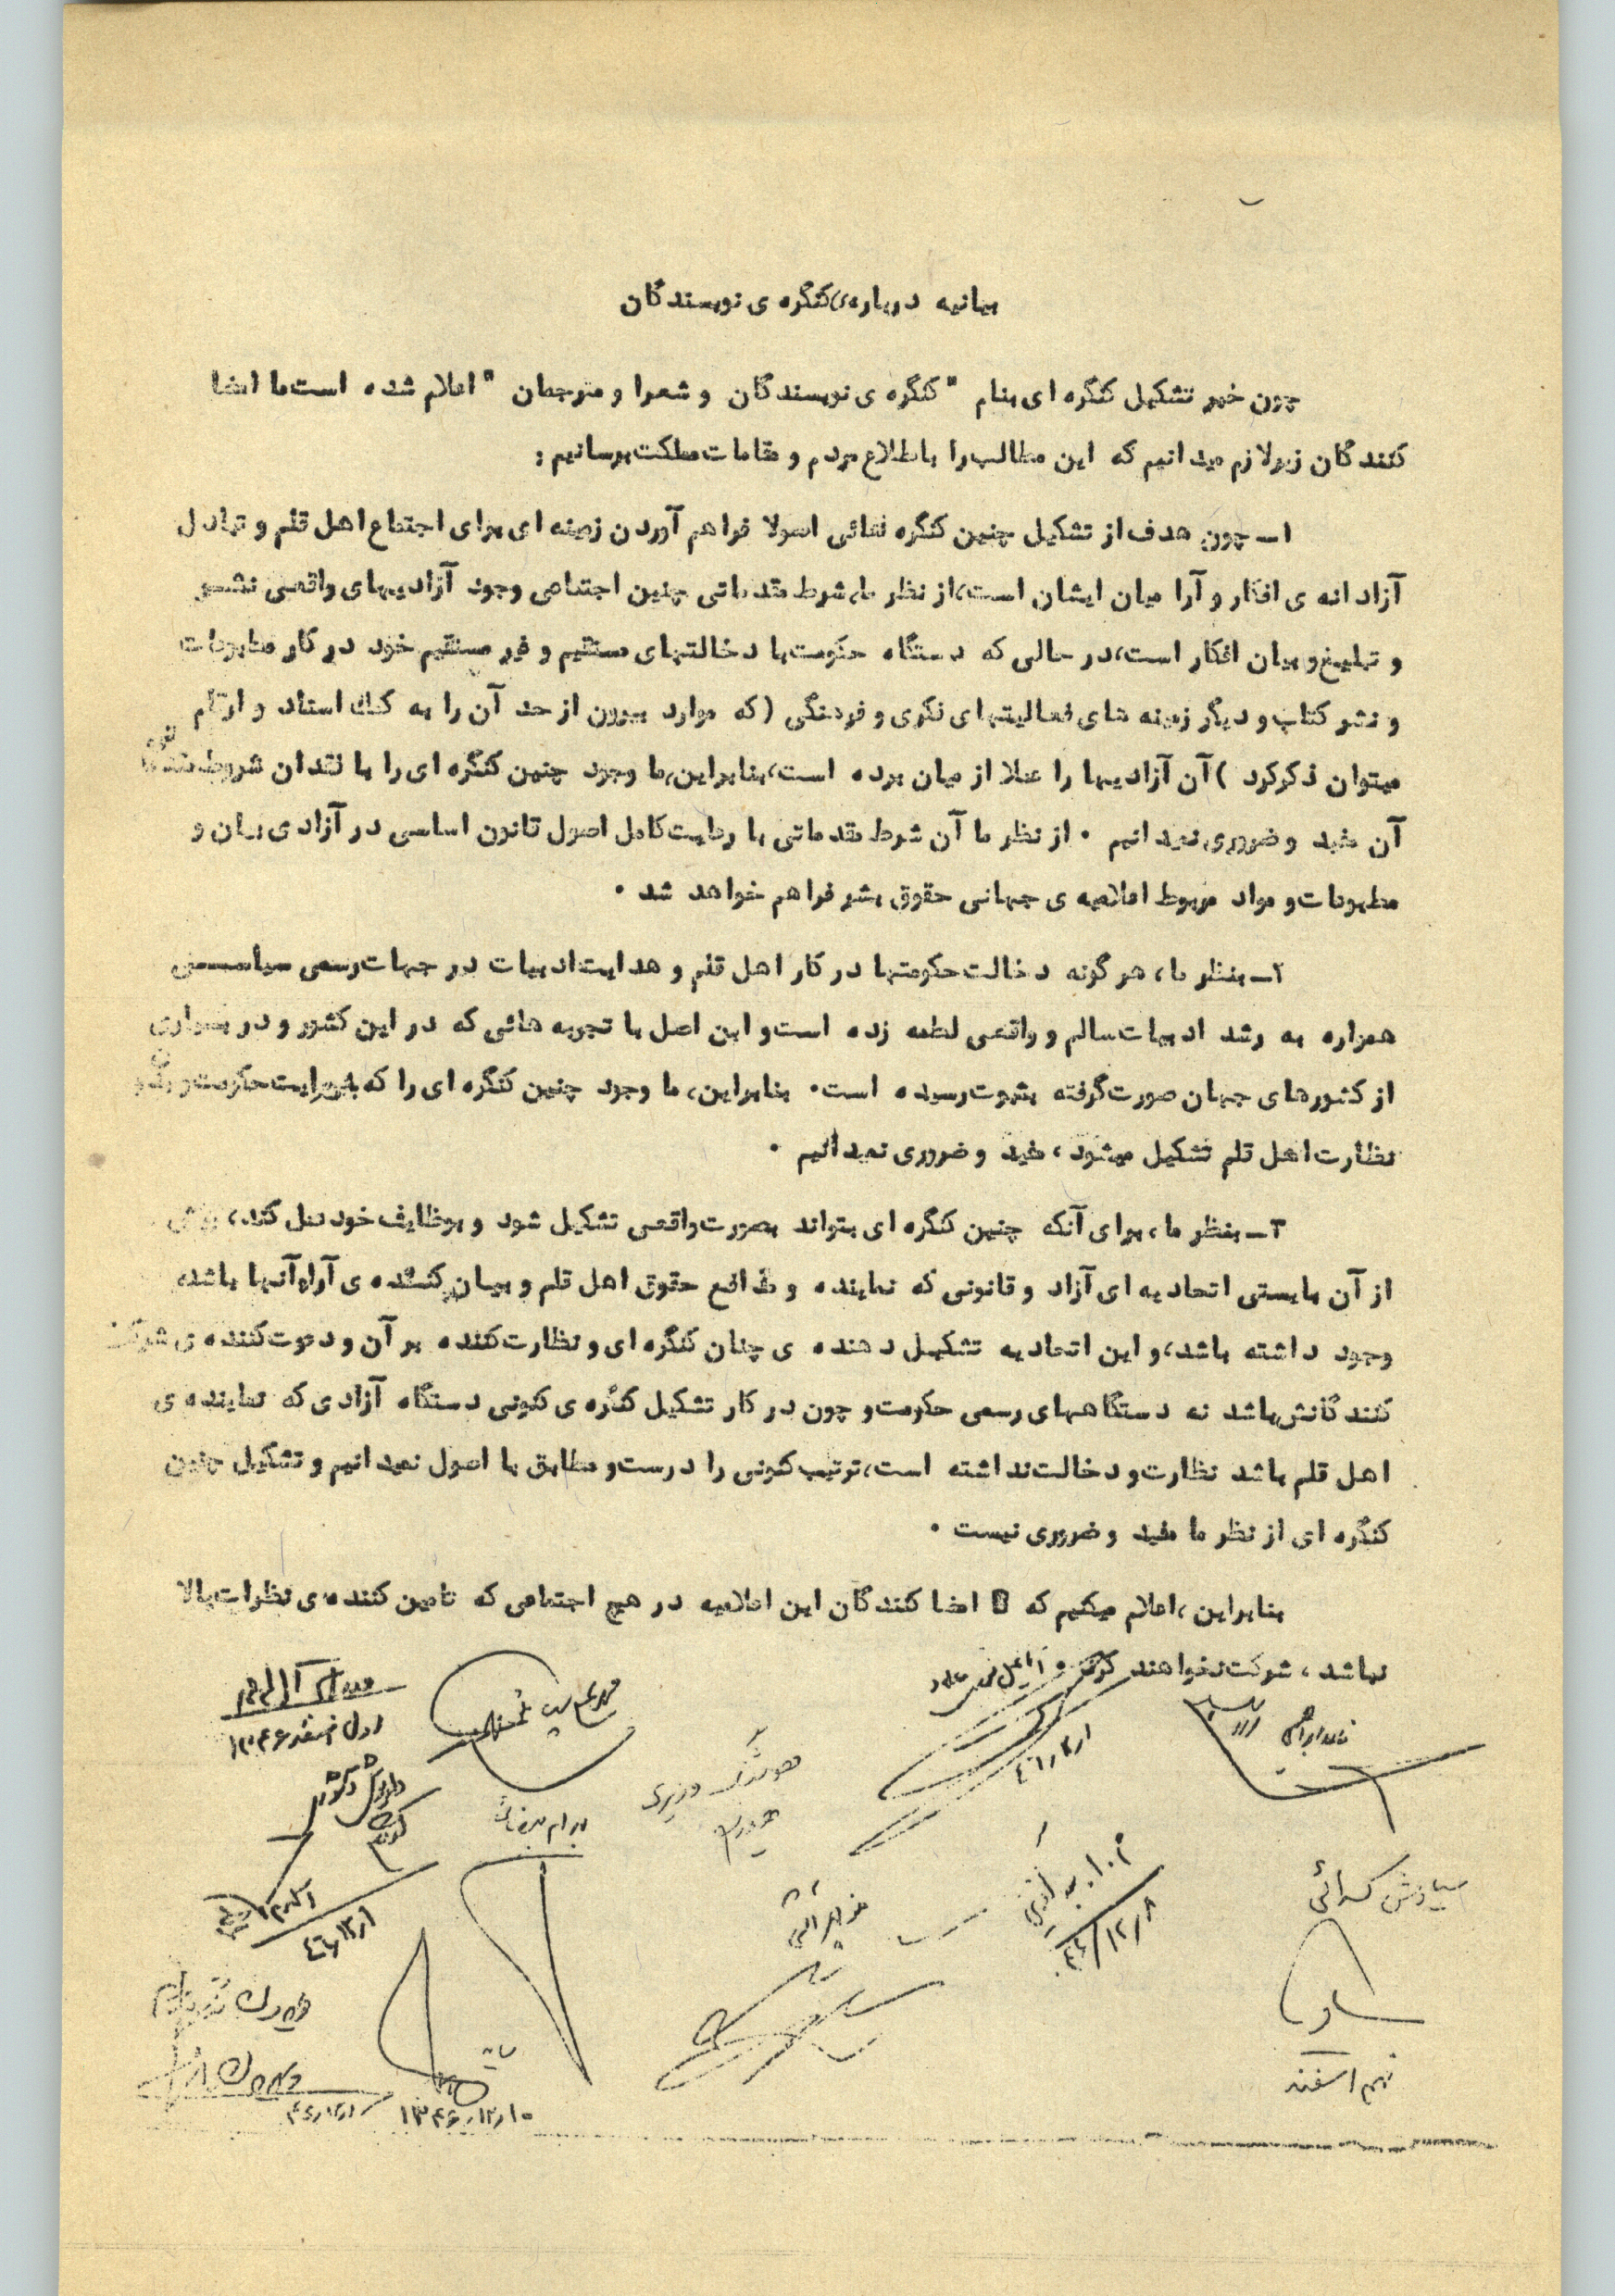 بیانیه درباره‌ی کنگره ی نویسندگان
چون خبر تشکیل کنگره ای بنام " کنگره ی نویسندگان و شعرا و مترجمان " اعلام شده است ما امضا
کنندگان زیر لازم میدانیم که این مطالب را باطلاع مردم و مقامات مملکت برسانیم :
۱ـ چون هدف از تشکیل چنین کنگره هائی اصولا فراهم آوردن زمینه ای برای اجتماع اهل قلم و تبادل
آزادانه ی افکار و آرا میان ایشان است، از نظر ما، شرط مقدماتی چنین اجتماعی وجود آزادیهای واقعی نشر
و تبلیغ و بیان افکار است، در حالی که دستگاه حکومت با دخالتهای مستقیم و غیر مستقیم خود در کار مطبوعات
و نشر کتاب و دیگر زمینه های فعالیتهای فکری و فرهنگی ( که موارد بیرون از حد آن را به کمک اسناد و ارقام
میتوان ذکر کرد ) آن آزادیها را عملا از میان برده است، بنابراین، ما وجود چنین کنگره ای را با فقدان شروط مقدماتی
آن مفید و ضروری نمیدانیم . از نظر ما آن شرط مقدماتی با رعایت کامل اصول قانون اساسی در آزادی بیان و
مطبوعات و مواد مربوط اعلامیه ی جهانی حقوق بشر فراهم خواهد شد .
۲ـ بنظر ما، هر گونه دخالت حکومتها در کار اهل قلم و هدایت ادبیات در جهات رسمی سیاسی
همواره به رشد ادبیات سالم و واقعی لطمه زده است و این اصل با تجربه هائی که در این کشور و در بسیاری
از کشورهای جهان صورت گرفته بثبوت رسیده است. بنابراین، ما وجود چنین کنگره ای را که حکومت و بدون
نظارت اهل قلم تشکیل میشود، مفید و ضروری نمیدانیم .
۳ـ بنظر ما، برای آنکه چنین کنگره ای بتواند بصورت واقعی تشکیل شود و بوظایف خود عمل کند، پیش
از آن بایستی اتحادیه ای آزاد و قانونی که نماینده و مدافع حقوق اهل قلم و بیان کننده ی آراء آنها باشد،
وجود داشته باشد، و این اتحادیه تشکیل دهنده ی چنان کنگره ای و نظارت کننده بر آن و دعوت کننده ی شرکت
کنندگانش باشد نه دستگاههای رسمی حکومت و چون در کار تشکیل کنگره ی کنونی دستگاه آزادی که نماینده ی
اهل قلم باشد نظارت و دخالت نداشته است، ترتیب کنونی را درست و مطابق با اصول نمیدانیم و تشکیل چنین
کنگره ای از نظر ما مفید و ضروری نیست .
بنابراین، اعلام میکنیم که امضا کنندگان این اعلامیه در هیچ اجتماعی که تامین کننده ی نظرات بالا
نباشد ، شرکت نخواهند کرد
نادر ابراهیمی
۴۶/۱۲/۱
محمدعلی سپانلو
جلال آل احمد
اول اسفند ۱۳۴۶
داریوش آشوری
هوشنگ وزیری
بهرام بیضائی
اسلام کاظمیه
۴۶/۱۲/۱
م.ا. به آذین
۴۶/۱۲/۸
سیاوش کسرائی
نهم اسفند
فریدون تنکابنی
سایه
۱۳۴۶/۱۲/۱۰